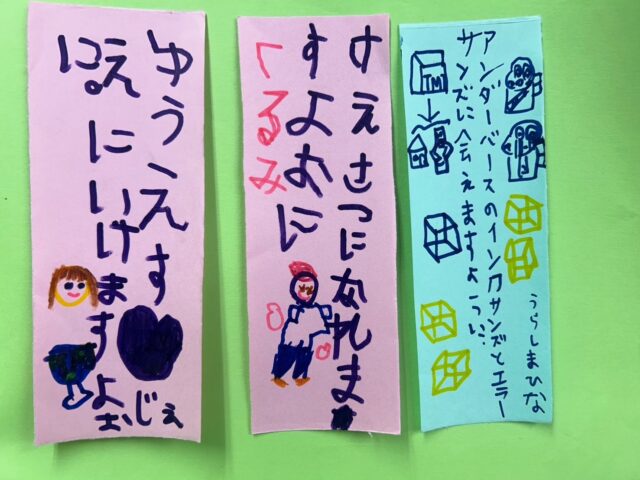 アンダーバースのインクサンズとエラー
サンズに会えますように…
うらしまひな
TM
けえさつになれま
すよおに
くるみ
ゆう、えすじぇ
えにいけますよお
に。